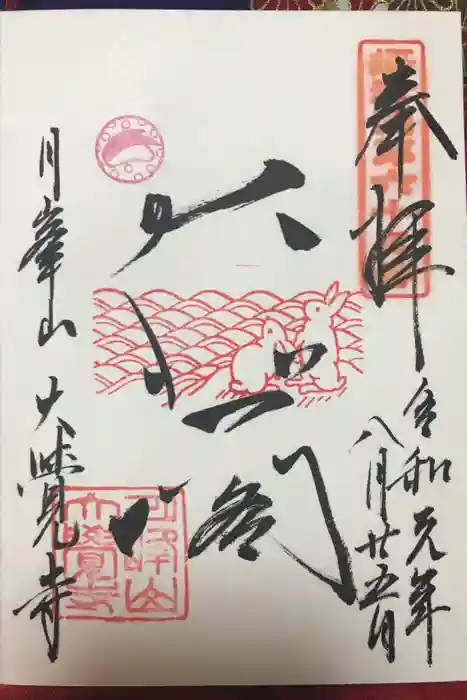 奉拝
令和元年
八月廿五日
大悲閣
月峯山 大覺寺
月峰山
大覺寺